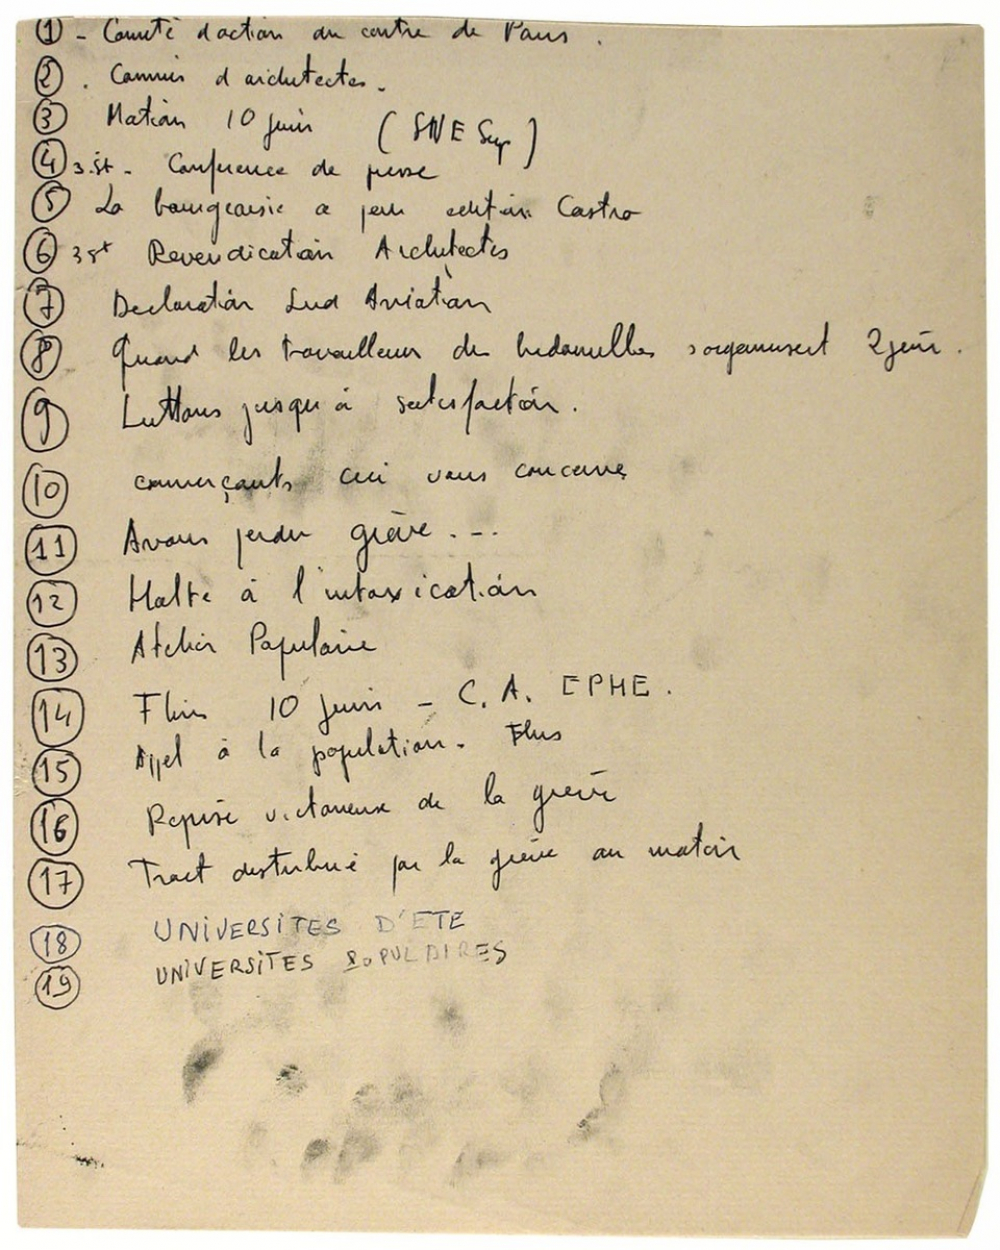 1 - Comité d'action du centre de Paris .
2 . Commis d'architectes.
3 Motion 10 juin ( SNE Sup )
4 3.st. Conférence de presse
5 La bourgeoisie a peur édition Castro
6 3st Revendication Architectes
7 Declaration Sud Aviation
8 Quand les travailleurs des bidonvilles s'organisent 2 juin .
9 Luttons jusqu'à satisfaction .
10 commerçants ceci vous concerne
11 Avons perdu grève . - -
12 Halte à l'intoxication
13 Atelier Populaire
14 Flins 10 juin - C. A. EPHE .
15 Appel à la population . Flins
16 Reprise victorieuse de la grève
17 Tract distribué par la grève au matin
18 UNIVERSITES D'ETE
19 UNIVERSITES POPULAIRES